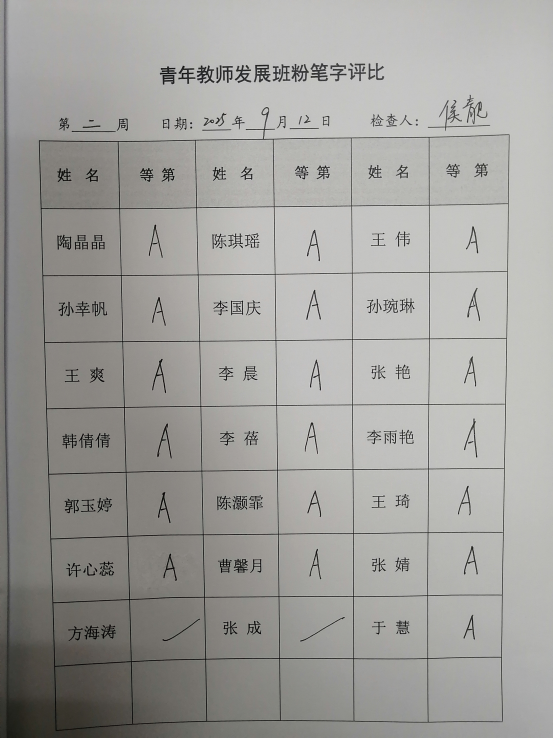 青年教师发展班粉笔字评比
第 二 周 日期: 2025 年 9 月 12 日 检查人: 侯靓
姓 名 等 第 姓 名 等 第 姓 名 等 第
陶晶晶 A 陈琪瑶 A 王 伟 A
孙幸帆 A 李国庆 A 孙琬琳 A
王 爽 A 李 晨 A 张 艳 A
韩倩倩 A 李 蓓 A 李雨艳 A
郭玉婷 A 陈灏霏 A 王 琦 A
许心蕊 A 曹馨月 A 张 婧 A
方海涛 张 成 于 慧 A